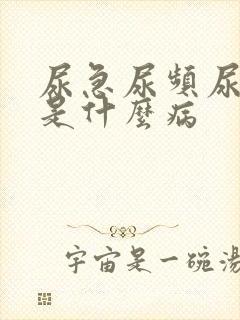 尿急尿頻尿
是什麼病
宇宙是一碗湯